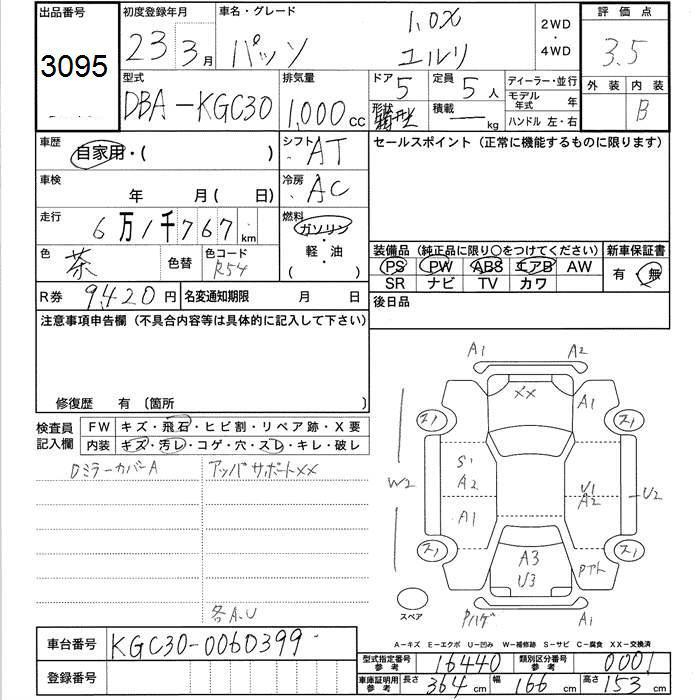 出品番号 初度登録年月 車名・グレード 2WD ・ 4WD 評価点
3095 23 3月 パッソ 1.0X ユルリ 3.5
型式 排気量 ドア 定員 ディーラー・並行 外装 内装
DBA-KGC30 1,000cc 5 5人 モデル年式 年 B
形状 箱型 積載 ― kg ハンドル 左・右
車歴 自家用・( ) シフト AT セールスポイント(正常に機能するものに限ります)
車検 年 月(日) 冷房 AC
走行 6万1千767km 燃料 ガソリン・軽・油( )
色 茶 色替 色コード R54 装備品(純正品に限り○をつけてください) 新車保証書
PS PW ABS エアB AW 有・無
SR ナビ TV カワ
R券 9,420円 名変通知期限 月 日 後日品
注意事項申告欄(不具合内容等は具体的に記入して下さい)
修復歴 有 〔箇所 〕
検査員記入欄 FW キズ・飛石・ヒビ割・リペア跡・X要
内装 キズ・汚レ・コゲ・穴・スレ・キレ・破レ
DミラーカバーA アッパサポートXX
各A、U
A1 A2
XX A1
ス1 ス1
S1
W2 A2 U1 A2 U2
A1
ス1 ス1
A3 U3 Pアト
スペア Pハゲ A1
A-キズ E-エクボ U-凹み W-補修跡 S-サビ C-腐食 XX-交換済
車台番号 KGC30-0060399
型式指定番号参考 16440 類別区分番号参考 0001
登録番号
車庫証明用参考 長さ 364cm 幅 166cm 高さ 153cm